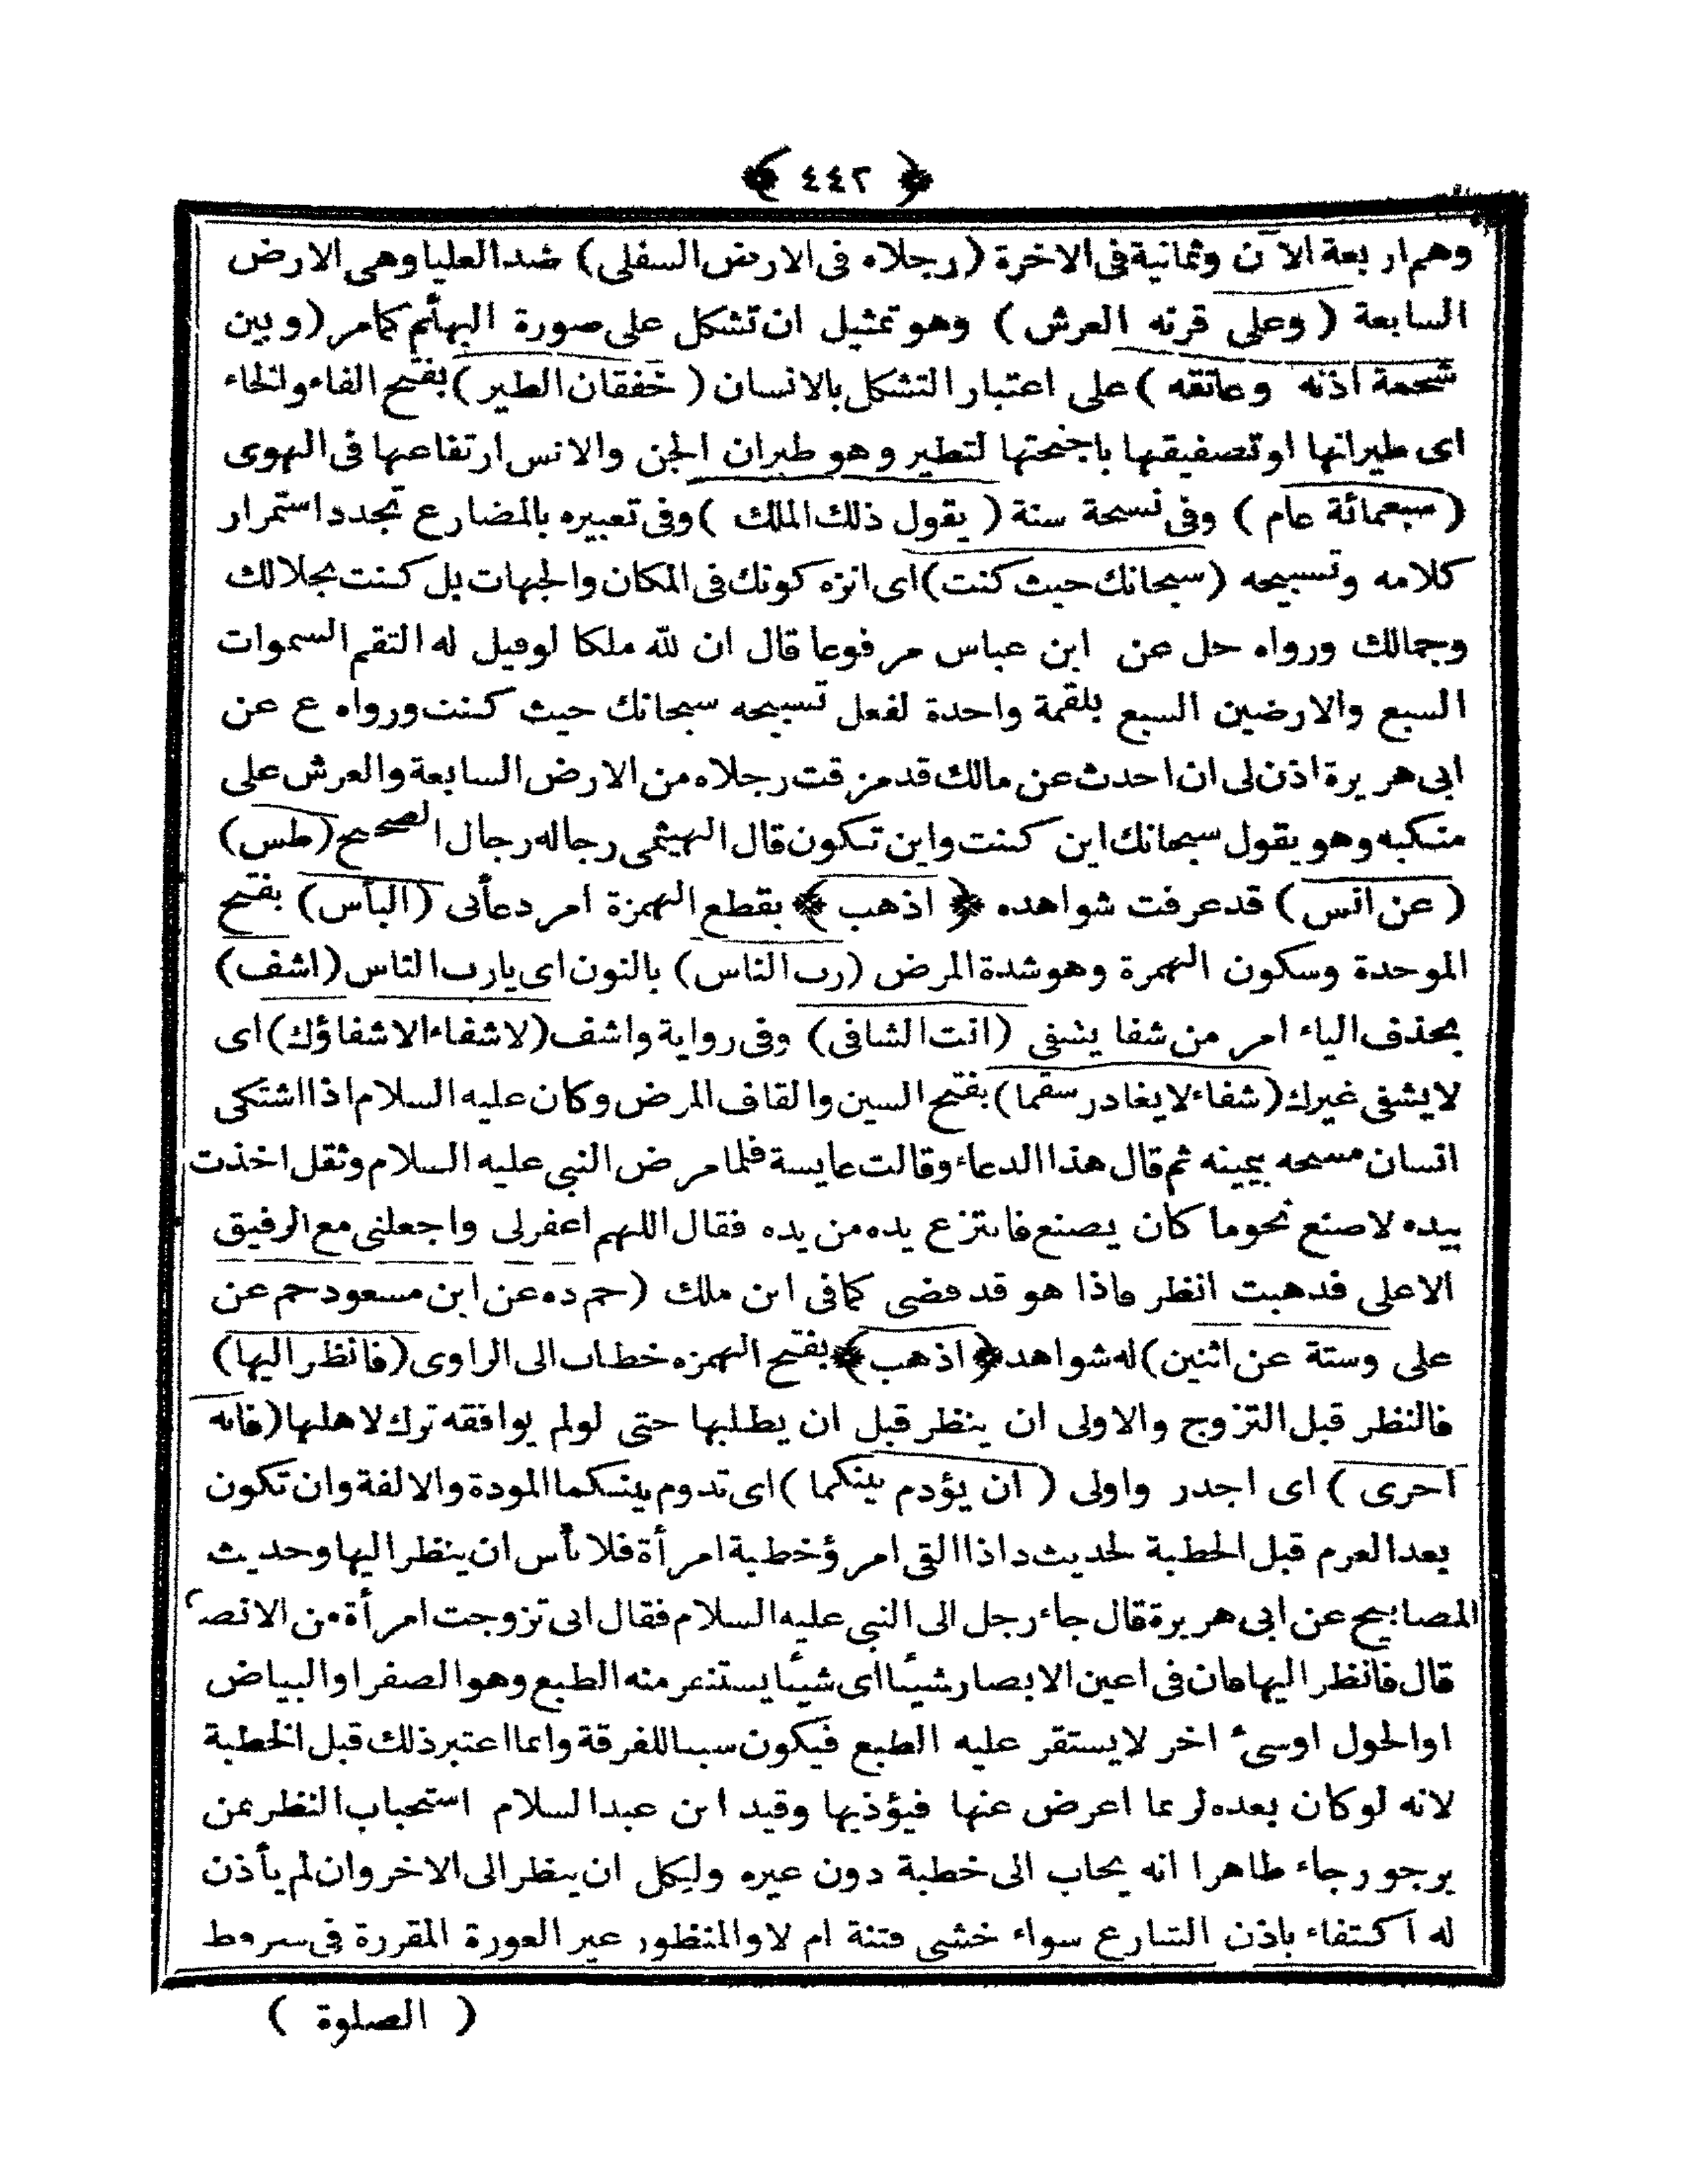 ﴿ ٤٤٢ ﴾
وهم اربعة الآن وثمانية فى الاخرة (رجلاه فى الارض السفلى) ضد العليا وهى الارض
السابعة (وعلى قرنه العرش) وهو تمثيل ان تشكل على صورة البهائم كمامر (وبين
شحمة اذنه وعاتقه) على اعتبار التشكل بالانسان (خفقان الطير) بفتح الفاء والخاء
اى طيرانها اوتصفيقها باجنحتها لتطير وهو طيران الجن والانس ارتفاعها فى الهوى
(سبعمائة عام) وفى نسحة سنة (يقول ذلك الملك) وفى تعبيره بالمضارع تجدد استمرار
كلامه وتسبيحه (سبحانك حيث كنت) اى انزه كونك فى المكان والجهات بل كنت بجلالك
وجمالك ورواه حل عن ابن عباس مرفوعا قال ان لله ملكا لوقيل له التقم السموات
السبع والارضين السبع بلقمة واحدة لفعل تسبيحه سبحانك حيث كنت ورواه ع عن
ابى هريرة اذن لى ان احدث عن مالك قد مزقت رجلاه من الارض السابعة والعرش على
منكبه وهو يقول سبحانك اين كنت واين تكون قال الهيثمى رجاله رجال الصحيح (طس)
(عن انس) قد عرفت شواهده ﴿ اذهب ﴾ بقطع الهمزة امر دعائى (البأس) بفتح
الموحدة وسكون الهمزة وهو شدة المرض (رب الناس) بالنون اى يارب الناس (اشف)
بحذف الياء امر من شفا يشفى (انت الشافى) وفى رواية واشف (لاشفاء الاشفاؤك) اى
لايشفى غيرك (شفاء لايغادر سقما) بفتح السين والقاف المرض وكان عليه السلام اذا اشتكى
انسان مسحه بيمينه ثم قال هذا الدعاء وقالت عايسة فلما مرض النبى عليه السلام وثقل اخذت
بيده لاصنع نحوما كان يصنع فانتزع يده من يده فقال اللهم اغفرلى واجعلنى مع الرفيق
الاعلى فذهبت انظر ماذا هو قد قضى كمافى ابن ملك (حم ده عن ابن مسعود حم عن
على وستة عن اثنين) له شواهد ﴿ اذهب ﴾ بفتح الهمزه خطاب الى الراوى (فانظر اليها)
فالنظر قبل التزوج والاولى ان ينظر قبل ان يطلبها حتى لولم يوافقه ترك لاهلها (فانه
احرى) اى اجدر واولى (ان يؤدم بينكما) اى تدوم بينكما المودة والالفة وان تكون
بعد العزم قبل الخطبة لحديث د اذا القى امرؤ خطبة امرأة فلا بأس ان ينظر اليها وحديث
المصابيح عن ابى هريرة قال جاء رجل الى النبى عليه السلام فقال انى تزوجت امرأة من الانصـ
قال فانظر اليها فان فى اعين الابصار شيئا اى شيئا يستنفر منه الطبع وهو الصفر او البياض
اوالحول اوسىء اخر لايستقر عليه الطبع فيكون سببا للفرقة وانما اعتبر ذلك قبل الخطبة
لانه لوكان بعده لربما اعرض عنها فيؤذيها وقيد ابن عبد السلام استحباب النظر بمن
يرجو رجاء ظاهرا انه يجاب الى خطبة دون غيره وليكل ان ينظر الى الاخر وان لم يأذن
له اكتفاء باذن الشارع سواء خشى فتنة ام لا والمنظور غير العورة المقررة فى سروط
( الصلوة )